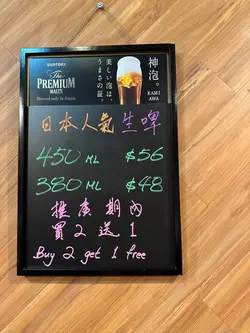 SUNTORY
The
PREMIUM
MALT'S
Brewed only in Japan
美しい泡は、
うまさの証。
神泡。
KAMI
AWA
日本人氣生啤
450 ML $56
380 ML $48
推廣期內
買2送1
Buy 2 get 1 free